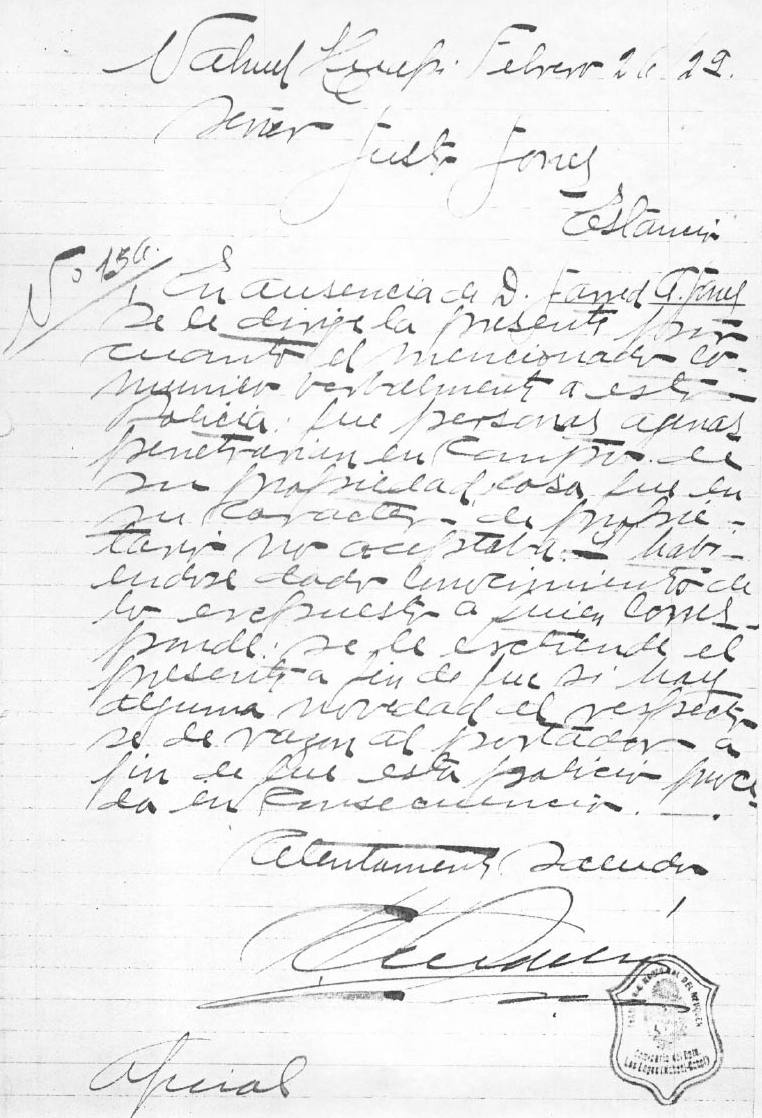 Nahuel Huapi. Febrero 26/29.
Señor Justo Jones
Estancia
No 156.
En ausencia de D. Jarred A. Jones
se le dirije la presente por
cuanto el mencionado co-
munico verbalmente a esta
Policia; que personas agenas
penetrarian en Campos de
su propiedad, cosa que en
su caracter de propie-
tario no aceptaba. Y habi-
endose dado conocimiento de
lo expuesto a quien corres-
ponde; se le extiende el
presente a fin de que si hay
alguna novedad al respecto
se de razon al portador a
fin de que esta policia proce-
da en consecuencia.
Atentamente Saluda
Oficial
Comisaria del Dpto.
Los Lagos (Nahuel-Huapi)